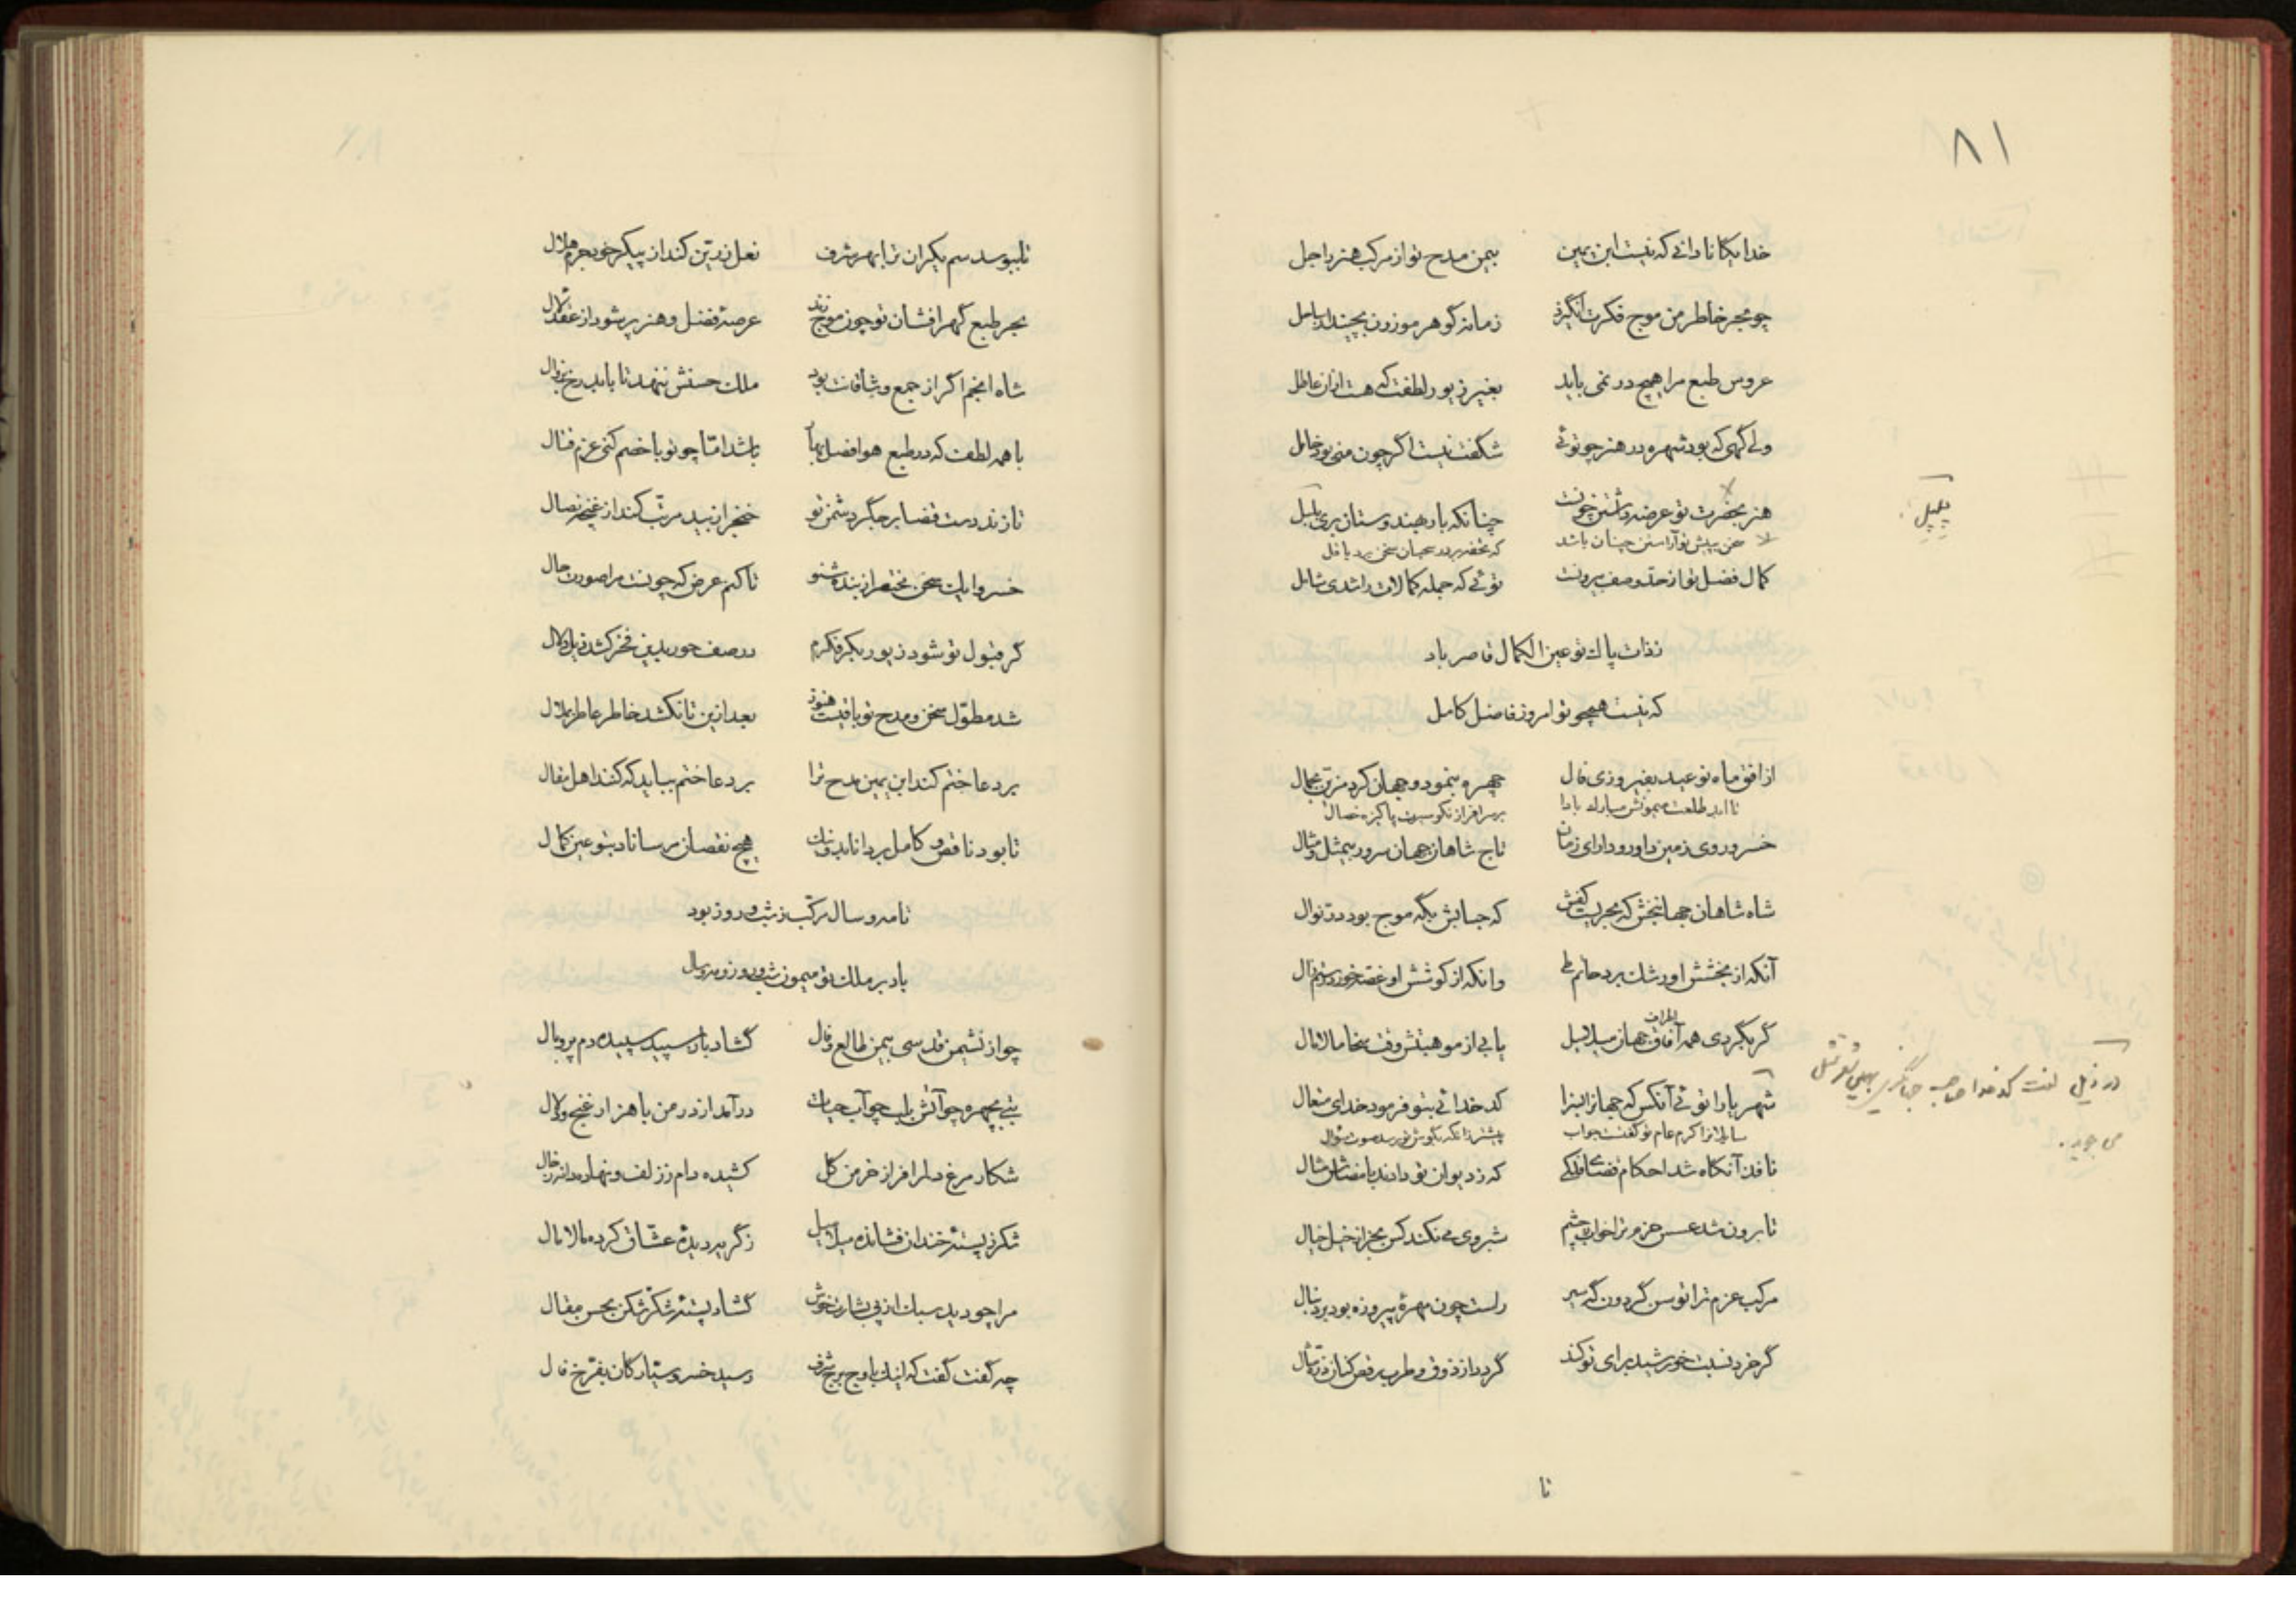 ۸۱
خدایگانا دانی که نیست ابن یمین بیمن مدح تو از مرکب هنر راجل
چو بحر خاطر من موج فکرت انگیزد زمانه گوهر موزون بچیند از ساحل
عروس طبع مرا هیچ در نمی باید بغیر زیور لطفت که هست ازان عاطل
ولی گهی که بود شهره در هنر چو توئی شگفت نیست اگر چون منی بود خامل
هنر بحضرت تو عرضه داشتن چونست چنانکه باد هندوستان بری پلپل
پلپل
سخن به پیش تو آراستن چنان باشد که تحفه بر در سحبان سخن برد باقل
کمال فضل تو از حد و وصف بیرونست توئی که جمله کمالات را شدی شامل
ز ذات پاک تو عین الکمال قاصر باد
که نیست همچو تو امروز فاضل کامل
از افق ماه نو عید بفیروزی فال چهره بنمود و جهان کرد مزین بجمال
تا ابد طلعت میمونش مبارک بادا بر سرافراز نکو سیرت پاکیزه خصال
خسرو روی زمین داور و دارای زمان تاج شاهان جهان سرور بیمثل و مثال
شاه شاهان جهانبخش که بحریست کفش که حبابش بگه موج بود در نوال
آنکه از بخشش او رشک برد حاتم طی وانکه از کوشش او غصه خورد رستم زال
گر بگردی همه اطراف جهان میلامیل یابی از موهبتش وقف سخا مالامال
شهریارا توئی آنکس که جهانرا بسزا کدخدائی بتو فرمود خدای متعال
در ذیل لغت کدخدا صاحب جهانگیری
می جوید.
سایلانرا کرم عام تو گفتست جواب پیشتر زانکه بگوش تو رسد صوت سؤال
نافذ آنگاه شد احکام قضای فلکی که ز دیوان تو دادند بامضاش مثال
تا برون شد عسس حزم ترا خواب ز چشم شبروی می نکند کس بجز از خیل خیال
مرکب عزم ترا توسن گردون گه سیر راست چون مهره پیروزه بود بر دنبال
گر خرد نسبت خورشید برای تو کند گردد از ذوق و طرب رقص کنان ذره مثال
تا
تا ببوسد سم یکران ترا بهر شرف نعل زرین کند از پیکر خود جرم هلال
بحر طبع گهر افشان تو چون موج زند عرصه فضل و هنر پر شود از عقد لآل
شاه انجم اگر از جمع وشاقانت بود ملک حسنش ننهد تا بابد رخ بزوال
با همه لطف که در طبع هوا فصل بهار باشد اما چو تو با خصم کنی عزم قتال
تا زند دست قضا بر جگر دشمن تو خنجر از بید مرتب کند از غنچه نصال
خسروا یک سخن مختصر از بنده شنو تا کنم عرض که چونست مرا صورت حال
گر قبول تو شود زیور بکر فکرم در صف حور بدین فخر کشد ذیل دلال
شد مطول سخن و مدح تو باقیست هنوز بعد ازین تا نکشد خاطر عاطر بملال
بر دعا ختم کند ابن یمین مدح ترا بر دعا ختم بباید که کند اهل مقال
تا بود ناقص و کامل بر دانا بد و نیک هیچ نقصان مرسانا بتو عین کمال
تا مه و سال مرکب ز شب و روز بود
باد بر ملک تو میمون شب و روز و مه و سال
چو از نشیمن قدسی بیمن طالع و فال گشاد باز سپید سپیده دم پر و بال
بتی بچهره چو آتش بلب چو آب حیات درآمد از در من با هزار غنج و دلال
شکار مرغ دلم را فراز خرمن گل کشیده دام ز زلف و نهاده دانه ز خال
شکر ز پسته خندان فشانده میلامیل ز گریه دیده عشاق کرده مالامال
مرا چو دید سبک از پی بشارت خوش گشاد پسته شکر شکن بحسن مقال
چه گفت گفت که اینک باوج برج شرف رسید خسرو سیارگان بفرخ فال